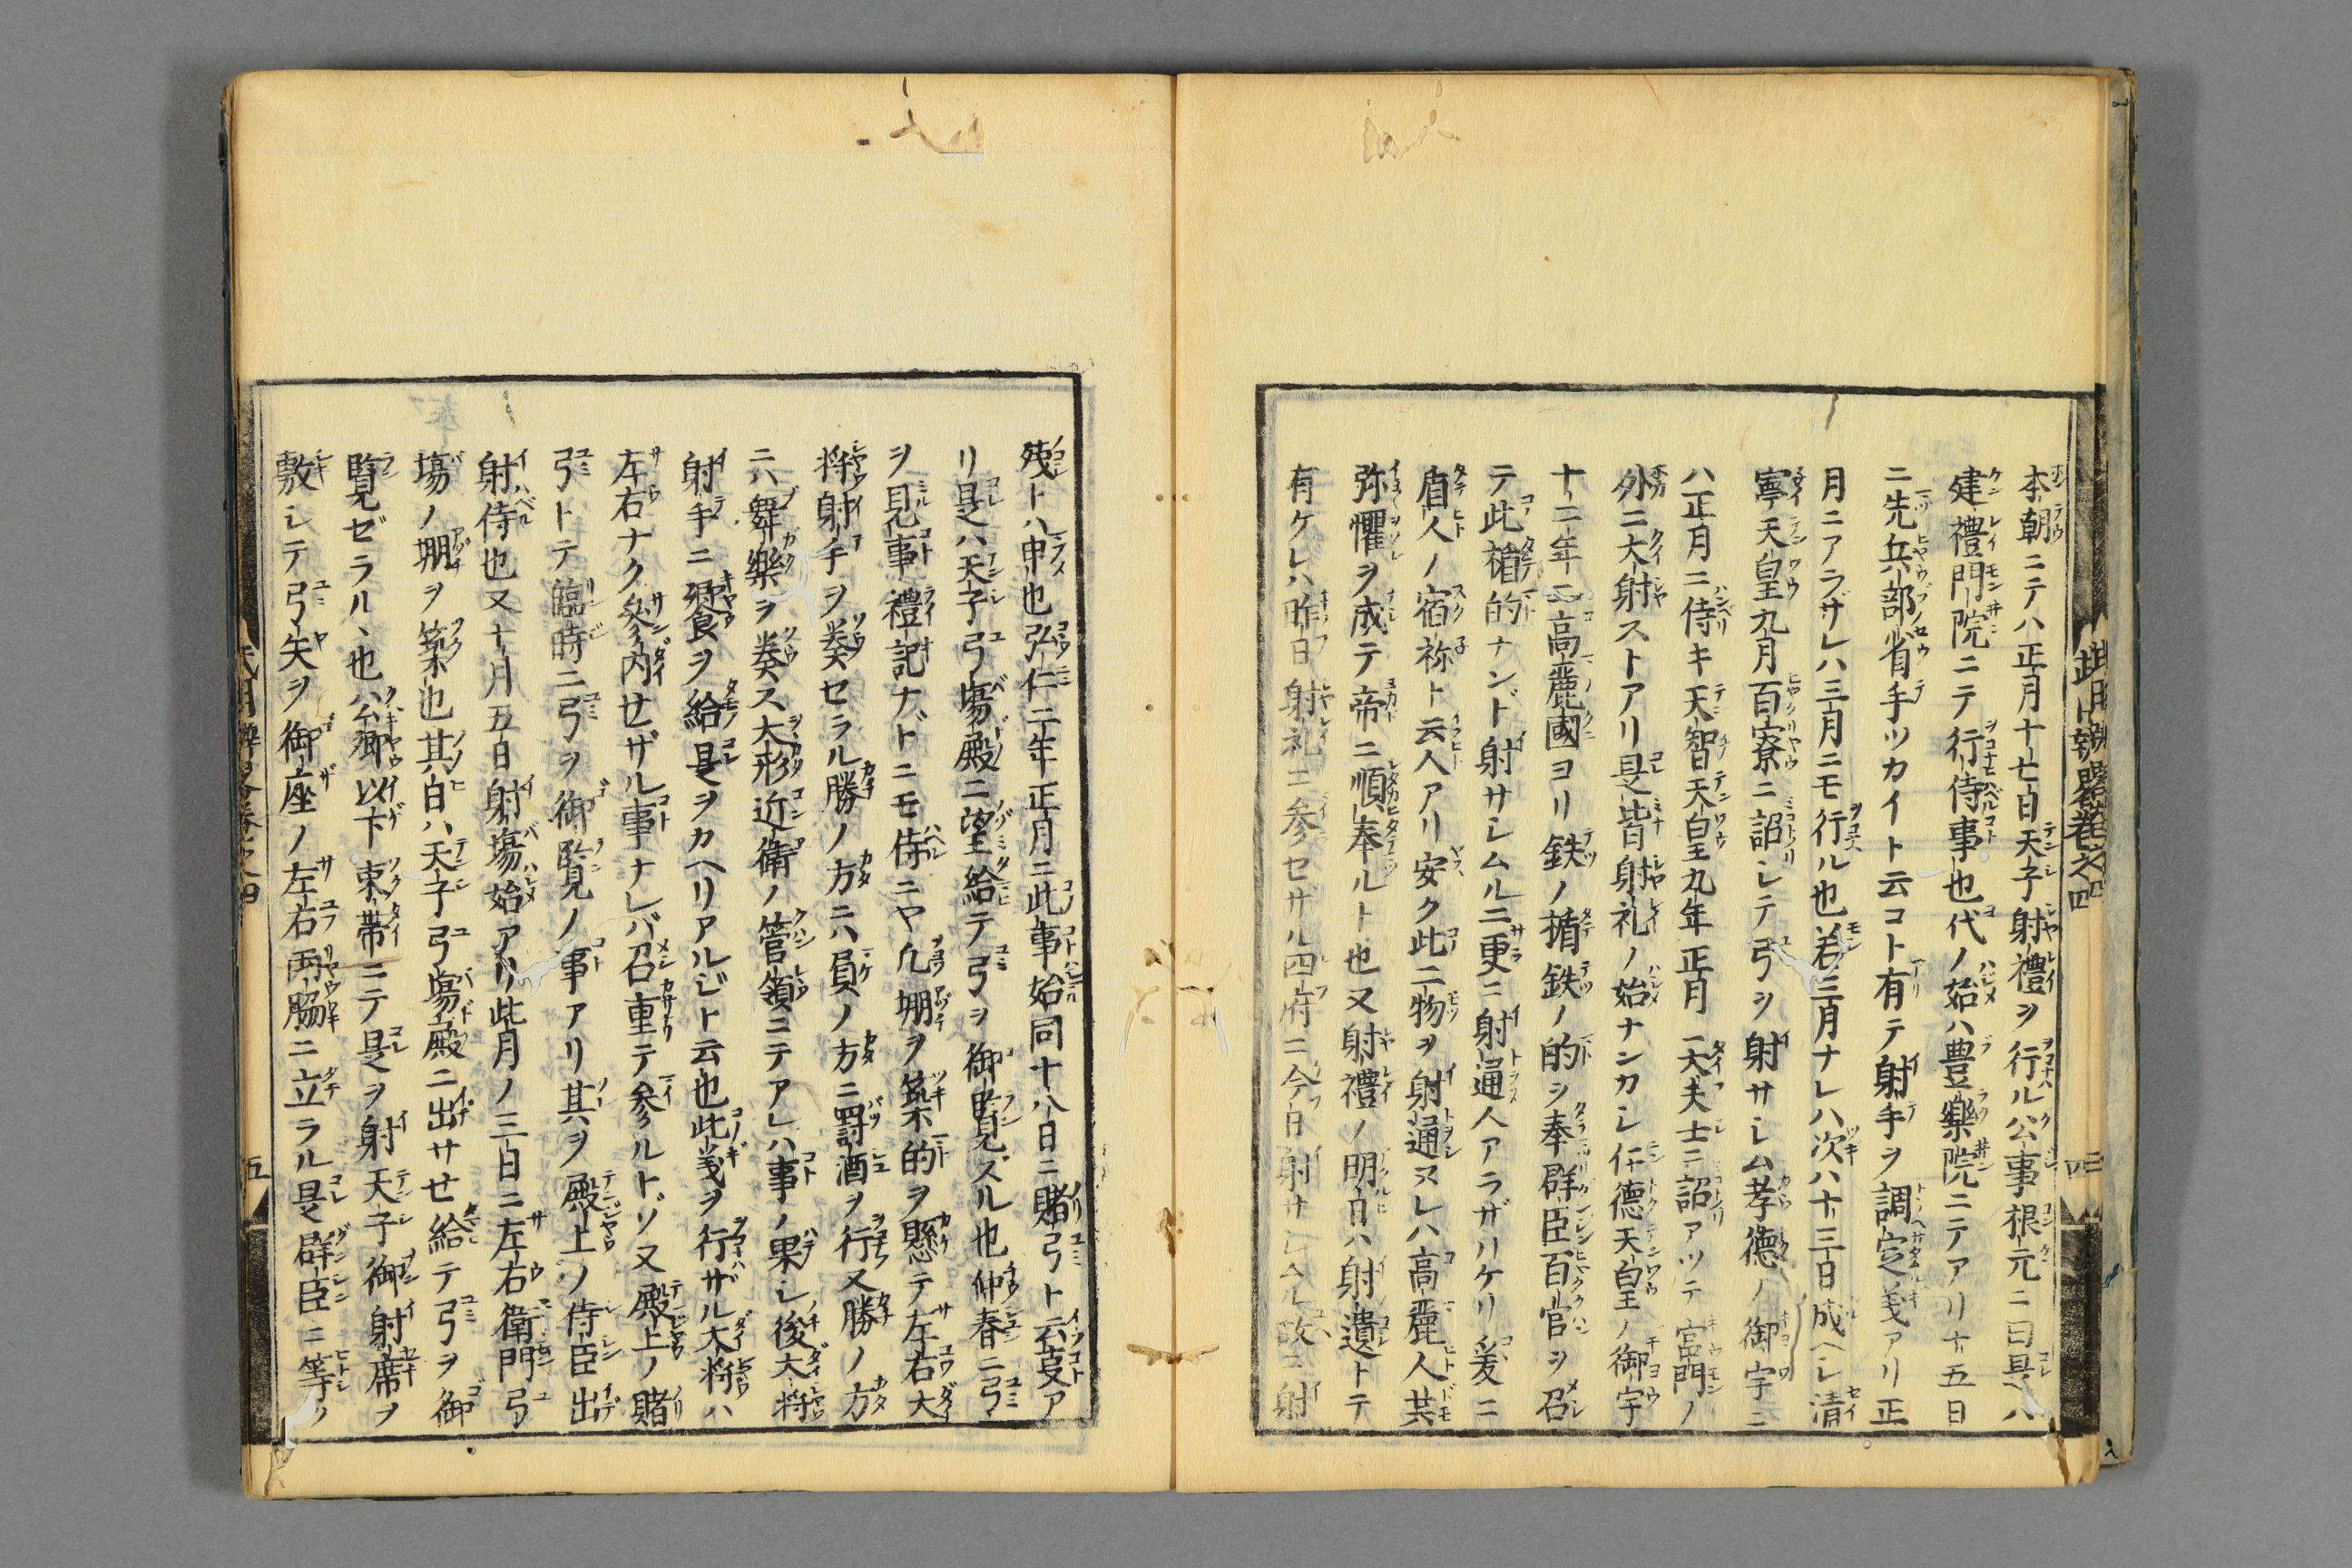 本朝ニテハ正月十七日天子射禮ヲ行ル公事根元ニ曰是ハ
建禮門院ニテ行侍事也代ノ始ハ豊樂院ニテアリ十五日
ニ先兵部省手ツカイト云コト有テ射手ヲ調定義アリ正
月ニアラザレハ三月ニモ行ル也若三月ナレハ次ハ十三日成ヘシ清
寧天皇九月百寮ニ詔シテ弓ヲ射サシム孝德ノ御宇ニ
ハ正月ニ侍キ天智天皇九年正月一大夫士ニ詔アツテ宮門ノ
外ニ大射ストアリ是皆射礼ノ始ナンカシ仁德天皇ノ御宇
十二年ニ高麗國ヨリ鉄ノ楯鉄ノ的ヲ奉群臣百官ヲ召
テ此楯的ナンド射サシムルニ更ニ射通人アラザリケリ爰ニ
盾人ノ宿祢ト云人アリ安ク此二物ヲ射通ヌレハ高麗人其
弥懼ヲ成テ帝ニ順奉ルト也又射禮ノ明日ハ射遺トテ
有ケレハ昨日射礼ニ参セザル四府ニ今日射サシムル故ニ射
残トハ申也弘仁二年正月ニ此事始同十八日ニ賭弓ト云㕝ア
リ是ハ天子弓塲殿ニ望給テ弓ヲ御覧ズル也仲春ニ弓
ヲ見事禮記ナドニモ侍ニヤ凡堋ヲ築的ヲ懸テ左右大
將射手ヲ奏セラル勝ノ方ニハ負ノ方ニ罸酒ヲ行又勝ノ方
ニハ舞樂ヲ奏ス大形近衛ノ管領ニテアレハ事ノ果シ後大将
射手ニ饗ヲ給是ヲカヘリアルジト云也此義ヲ行ザル大将ハ
左右ナク參内セザル事ナレバ召重テ参ルトソ又殿上ノ賭
弓トテ臨時ニ弓ヲ御覧ノ事アリ其ヲ殿上ノ侍臣出
射侍也又十月五日射塲始アリ此月ノ三日ニ左右衛門弓
塲ノ堋ヲ築也其日ハ天子弓塲殿ニ出サセ給テ弓ヲ御
覧ゼラルヽ也公卿以下束帯ニテ是ヲ射天子御射席ヲ
敷シテ弓矢ヲ御座ノ左右両脇ニ立ラル是群臣ニ等ツ